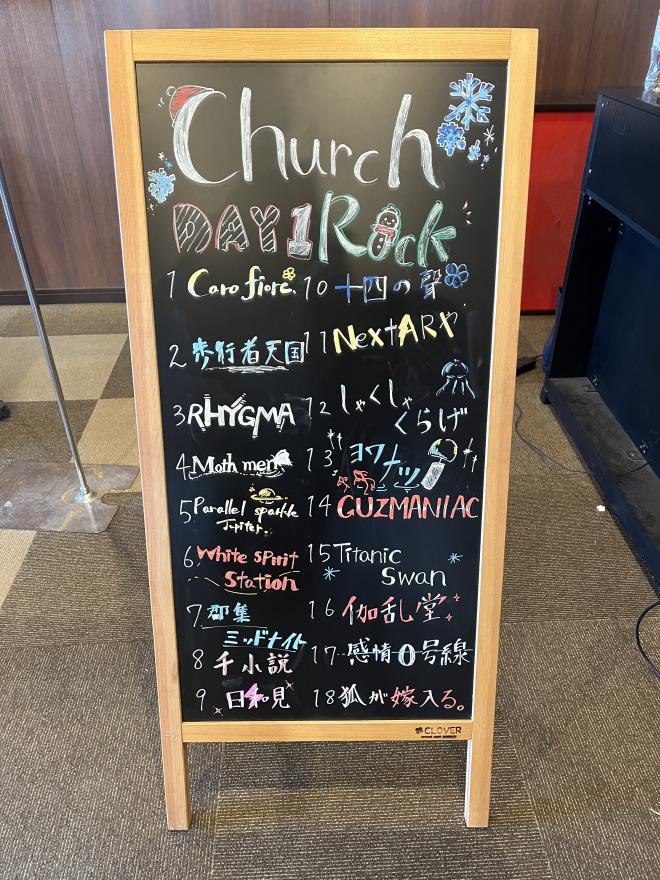 Church
DAY1 Rock
1 Caro fiore.
2 歩行者天国
3 RHYGMA
4 Moth men
5 Parallel sparkle
Jupiter.
6 White Spirit
Station
7 郡集
ミッドナイト
8 千小説
9 日和見
10 十四の聲
11 NextARX
12 しゃくしゃ
くらげ
13 ヨワナツ
14 GUZMANIAC
15 Titanic
Swan
16 伽乱堂
17 感情0号線
18 狐が嫁入る。
CLOVER